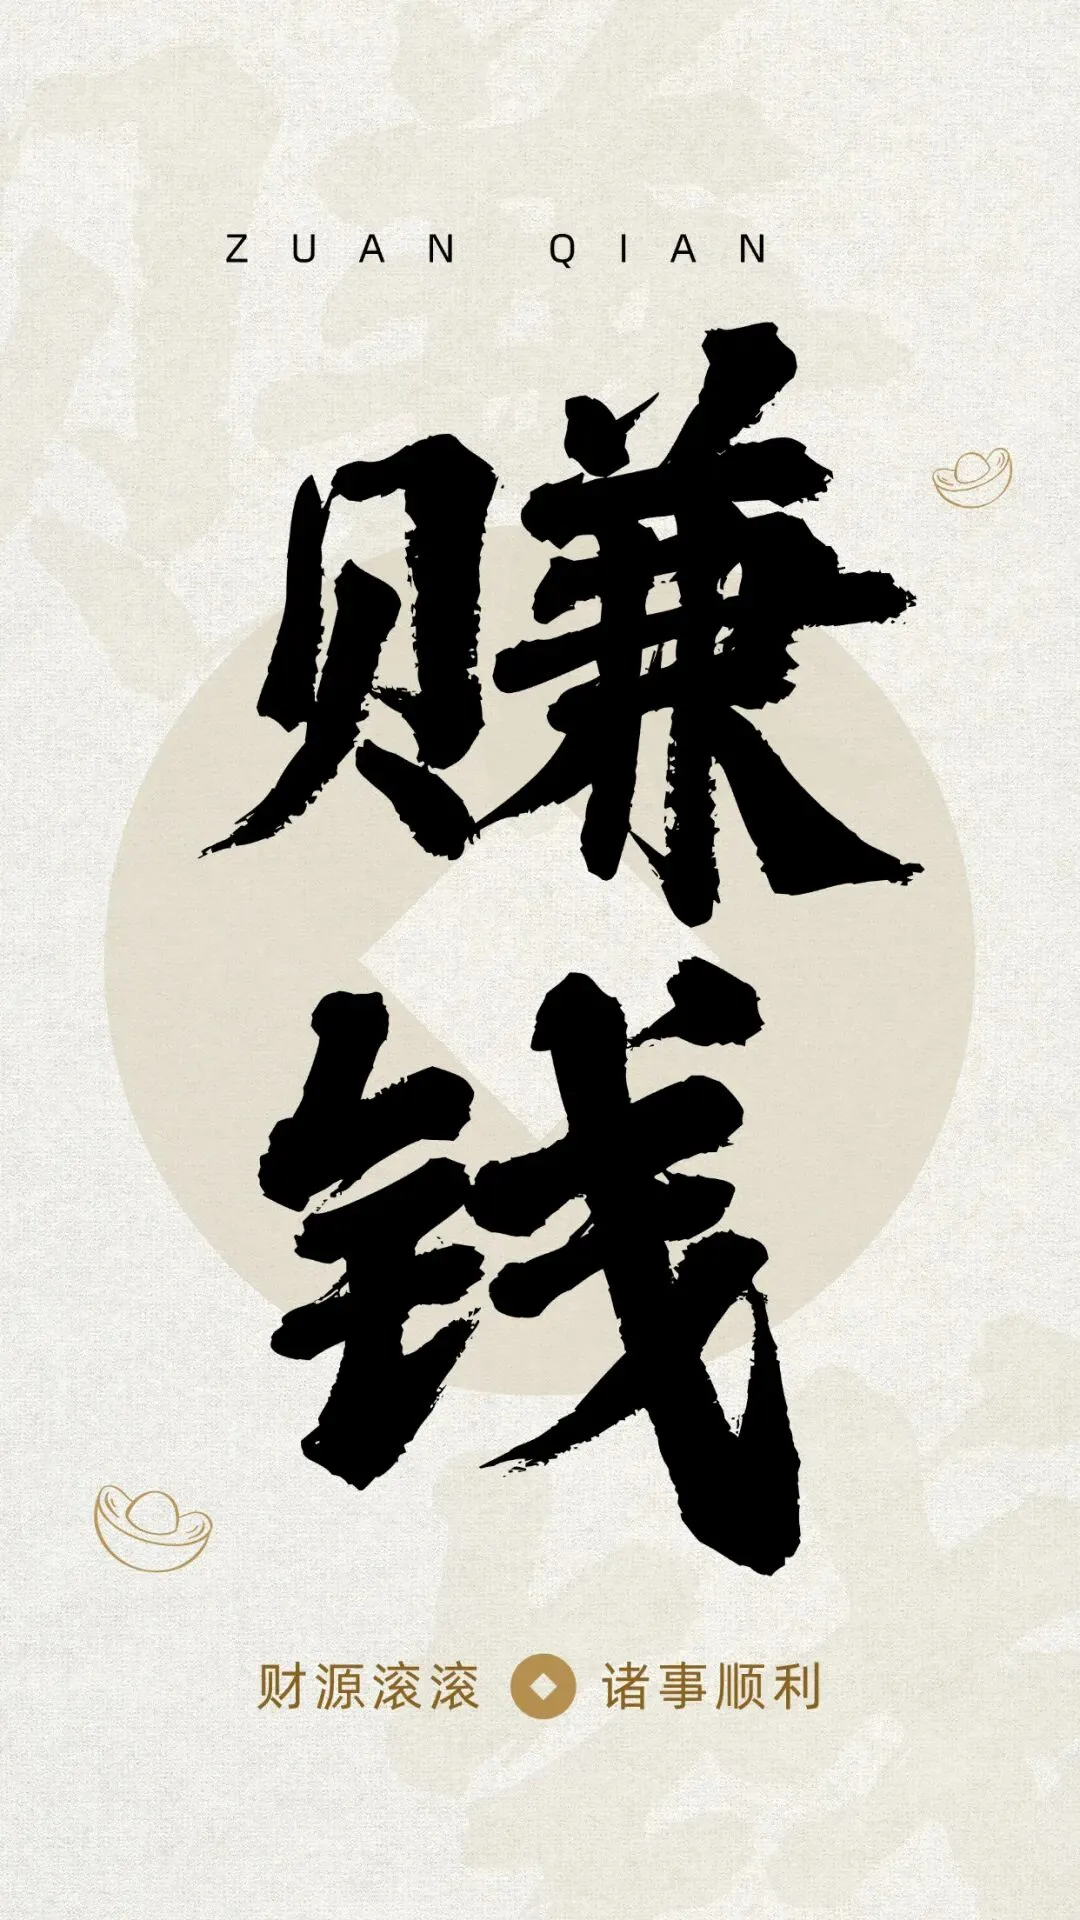 ZUAN QIAN
赚
钱
财源滚滚 诸事顺利